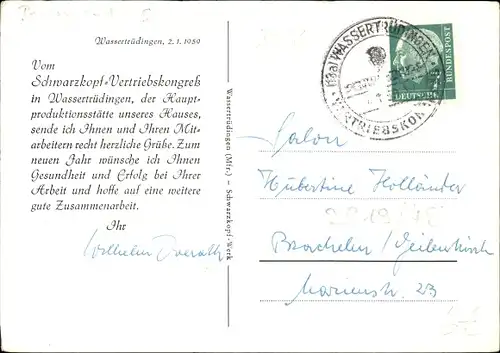 Wassertrüdingen, 2.1.1959
Vom
Schwarzkopf-Vertriebskongreß
in Wassertrüdingen, der Haupt-
produktionsstätte unseres Hauses,
sende ich Ihnen und Ihren Mit-
arbeitern recht herzliche Grüße. Zum
neuen Jahr wünsche ich Ihnen
Gesundheit und Erfolg bei Ihrer
Arbeit und hoffe auf eine weitere
gute Zusammenarbeit.
Ihr
Wilhelm
Wassertrüdingen (Mfr.) - Schwarzkopf-Werk
(13a) WASSERTRÜDINGEN
DEUTSCHE
BUNDESPOST
Salon
Hubertine Holländer
Brachelen/Geilenkirch
Marienstr. 23